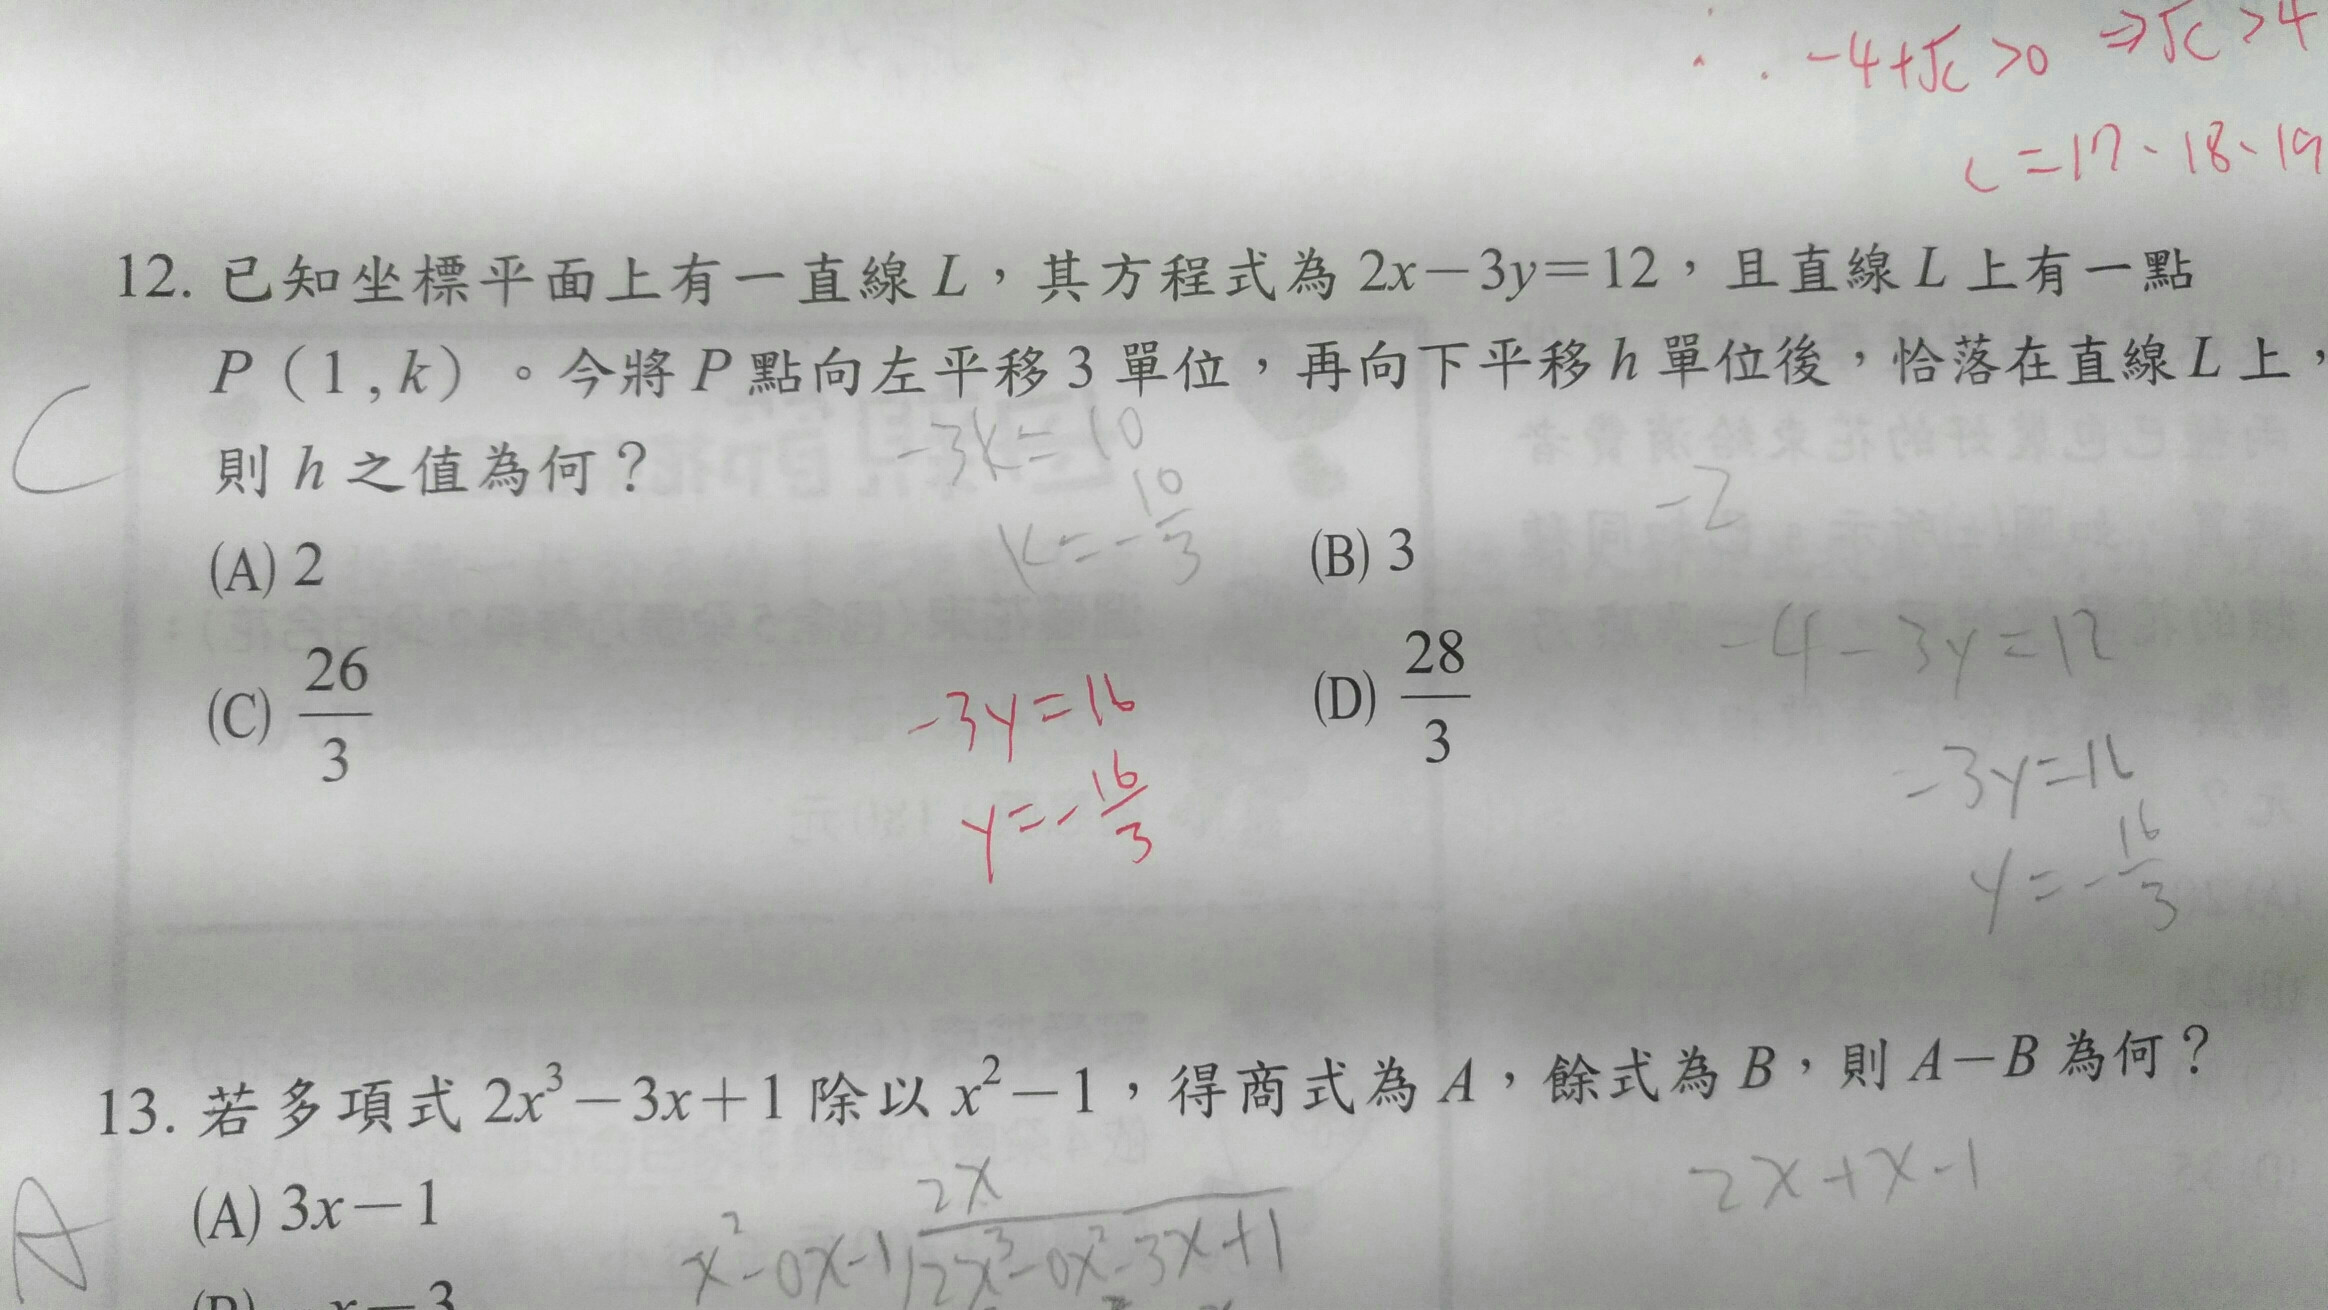 ∴ -4+√c>0 ⇒√c>4
c=17、18、19
12. 已知坐標平面上有一直線 L，其方程式為 2x－3y＝12，且直線 L 上有一點
P（1 , k）。今將 P 點向左平移 3 單位，再向下平移 h 單位後，恰落在直線 L 上，
C
則 h 之值為何？
-3k=10
k=-10/3
-2
(A) 2
(B) 3
-4-3y=12
(C) 26/3
(D) 28/3
-3y=16
y=-16/3
-3y=16
y=-16/3
13. 若多項式 2x³－3x＋1 除以 x²－1，得商式為 A，餘式為 B，則 A－B 為何？
A
(A) 3x－1
2x+x-1
2x
x²-0x-1 2x³-0x²-3x+1